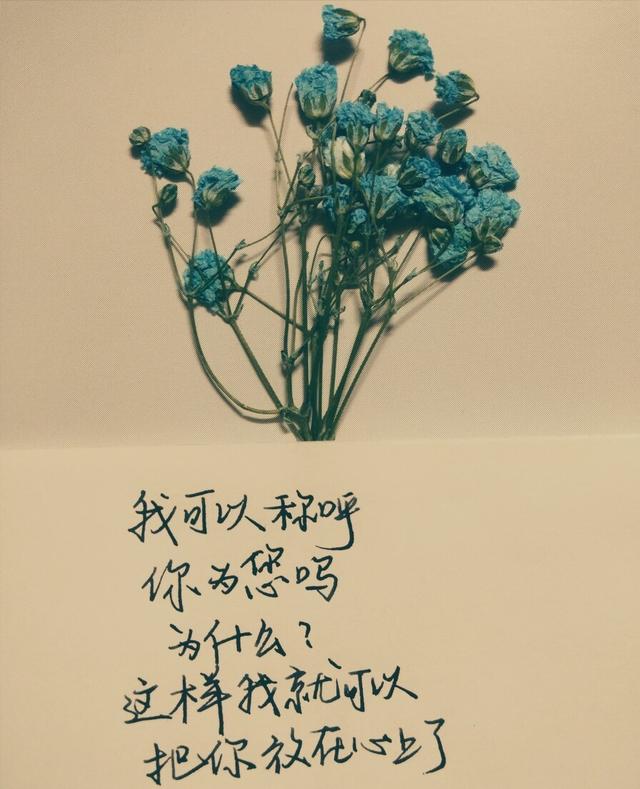 我可以称呼
你为您吗
为什么？
这样我就可以
把你放在心上了